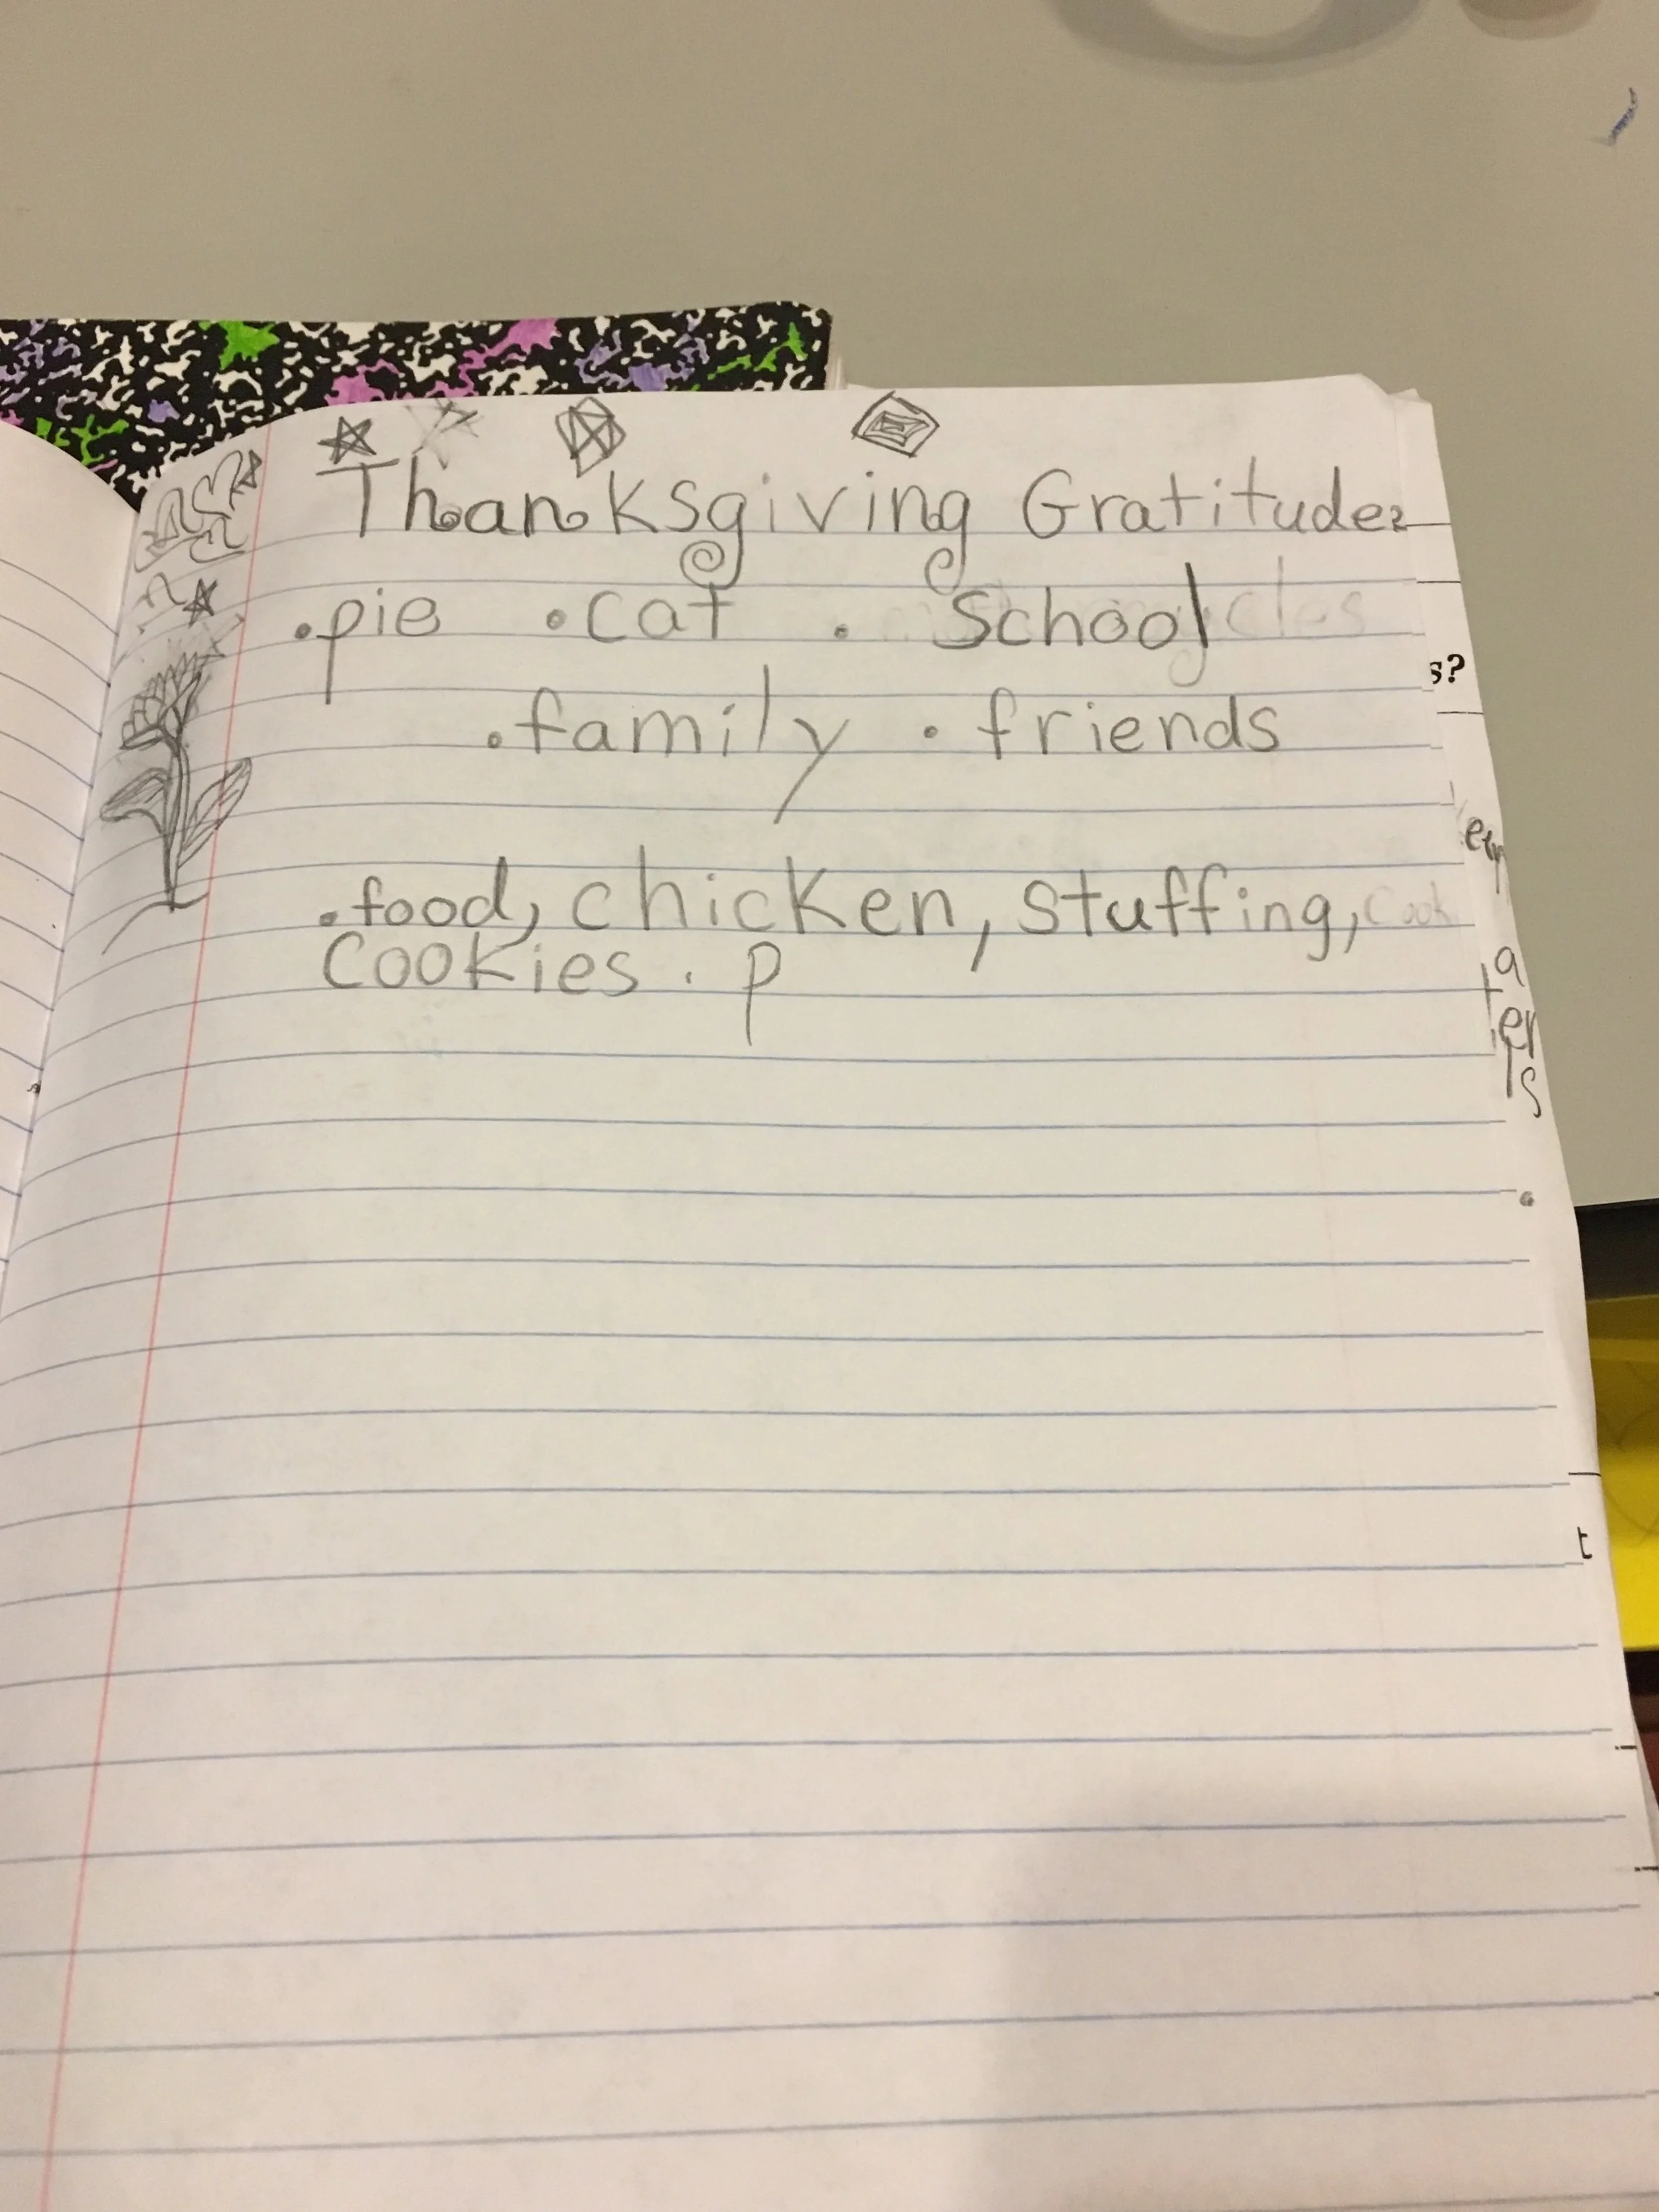 Thanksgiving Gratitude
• pie • cat • School
• family • friends
• food, chicken, stuffing,
cookies. p
s?
a
ter
ts
t